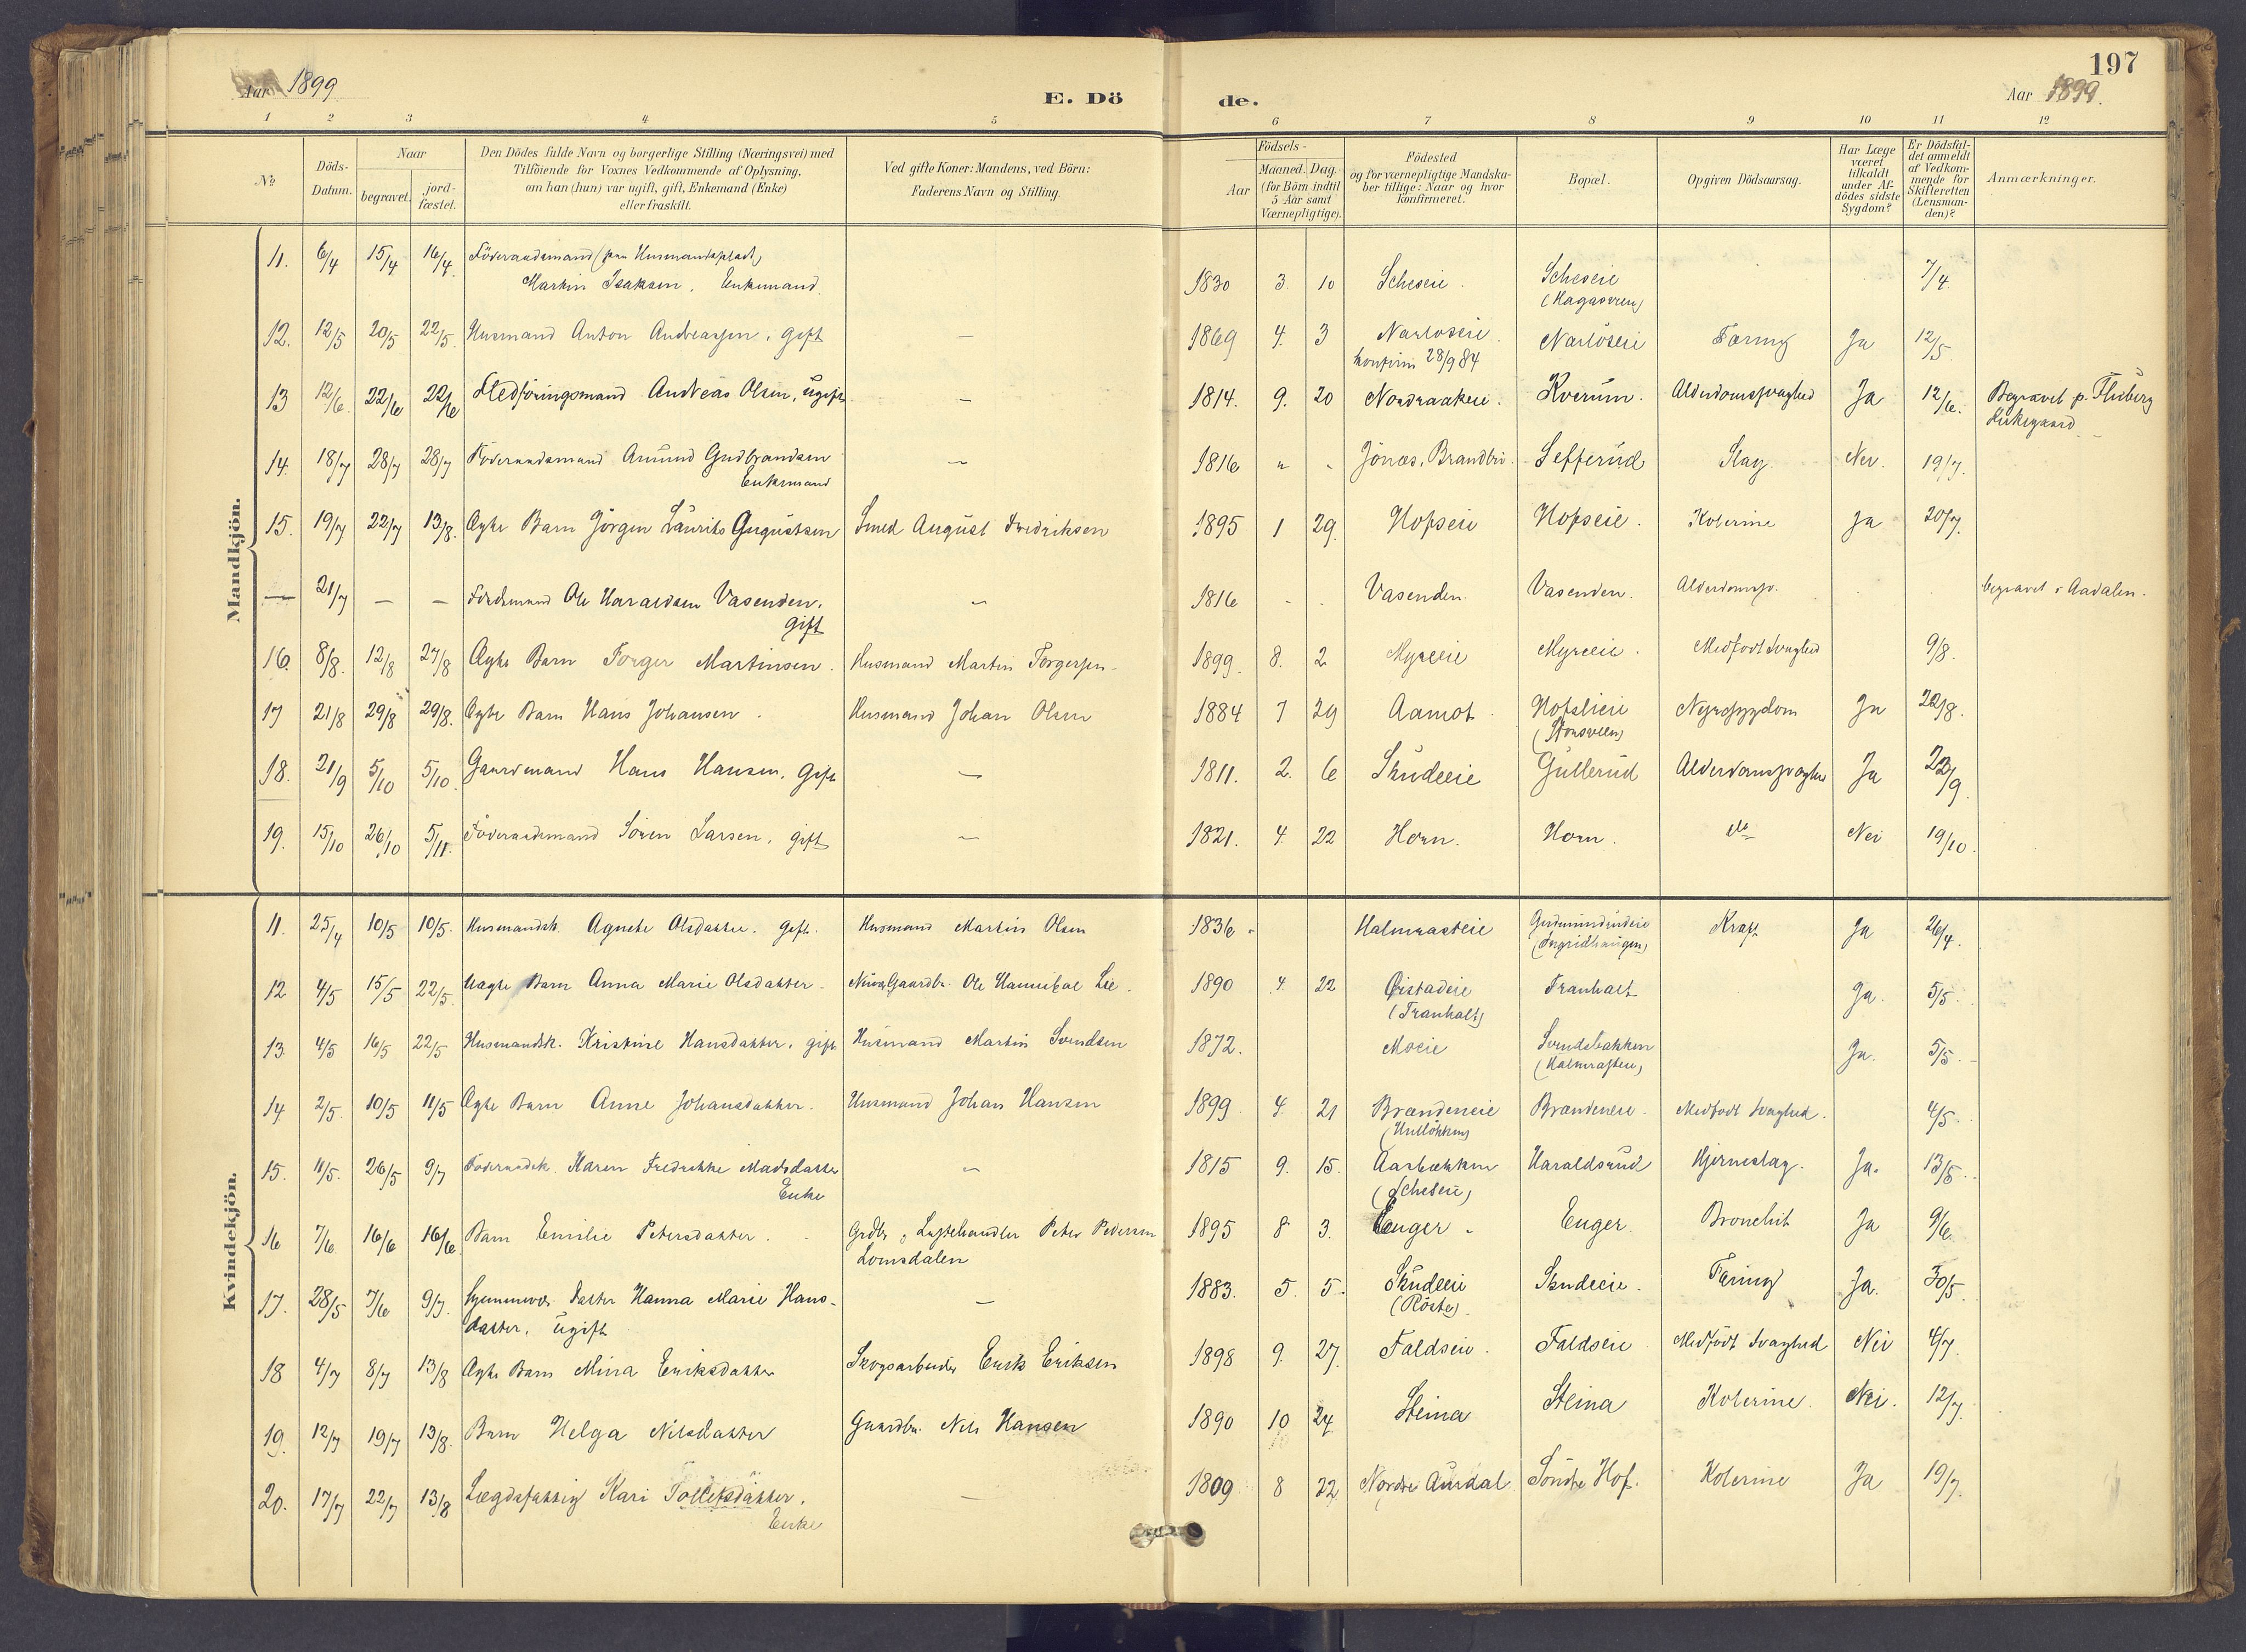 197
Aar 1899
E. Dö de.
Aar 1899.
1 2 3 4 5 6 7 8 9 10 11 12
No
Döds-Datum.
Naar
begravet.
jord-fæstet.
Den Dödes fulde Navn og borgerlige Stilling (Næringsvei) med
Tilföiende for Voxnes Vedkommende af Oplysning,
om han (hun) var ugift, gift, Enkemand (Enke)
eller fraskilt.
Ved gifte Koner: Mandens, ved Börn:
Faderens Navn og Stilling.
Födsels-
Aar
Maaned. Dag.
(for Börn indtil
5 Aar samt
Værnepligtige).
Födested
og for værnepligtige Mandska-
ber tillige: Naar og hvor
konfirmeret.
Bopæl.
Opgiven Dödsaarsag.
Har Læge
været
tilkaldt
under Af-
dödes sidste
Sygdom?
Er Dödsfal-
det anmeldt
af Vedkom-
mende for
Skifteretten
(Lensman-
den)?
Anmærkninger.
Mandkjön.
11. 6/4 15/4 16/4. Föderaadsmand (paa Husmandsplads)
Martin Isaksen. Enkemand. 1830 3. 10 Scheseie. Scheseie 7/4.
(Hagasveen)
12. 12/5 20/5 22/5. Husmand Anton Andreassen, gift — 1869 4. 3 Narloseie. Narlöseie Tæring Ja 12/5.
konfirm 28/9 84
13 12/6. 22/6 22/6 Ledföringsmand Andreas Olsen, ugift — 1814. 9. 20 Nordraakeie. Kverum. Alderdomssvaghed Ja 12/6. Begravet p. Fluberg
Kirkegaard
14. 18/7 28/7 28/7 Föderaadsmand Amund Gudbrandsen — 1816 " - Jönas, Brandbu. Sefferud Slag. Nei. 19/7.
Enkemand
15. 19/7 22/7 13/8. Ægte Barn Jörgen Laurits Augustsen Smed August Fredriksen 1895 1 29. Hofseie Hofseie. Kolerine Ja 20/7.
— 21/7 — — Föderaadsmand Ole Haraldsen Vasenden. — 1816 - - Vasenden. Vasenden. Alderdomssv. begravet i Aadalen.
gift
16. 8/8. 12/8 27/8 Ægte Barn Torger Martinsen. Husmand Martin Torgersen. 1899. 8. 2 Myreeie Myreeie. Medfödt Svaghed 9/8.
17 21/8 29/8 29/8. Ægte Barn Hans Johansen. Husmand Johan Olsen 1884 7 29 Aamot. Hofslieie Nyresygdom Ja 22/8.
18. 21/9 5/10 5/10. Gaardmand Hans Hansen. Gift — 1811. 2. 6 Skudeeie Gullerud Alderdomssvaghed Ja 22/9.
19. 15/10 26/10 5/11. Föderaadsmand Sören Larsen, gift — 1821. 4. 22 Horn. Horn. do Nei 19/10.
Kvindekjön.
11. 25/4 10/5 10/5. Husmandsk. Agnete Olsdatter. Gift. Husmand Martin Olsen 1836 - Halmrasteie Kræft Ja 26/4.
(Ingridhaugen)
12 4/5 15/5 22/5. Uægte Barn Anna Marie Olsdatter. Gaardbr. Ole Hannibal Lie. 1890 4. 22 Qistadeie Tranhalt Ja. 5/5.
(Tranhalt)
13. 4/5 16/5 22/5 Husmandsk. Kristine Hansdatter, gift Husmand Martin Svendsen 1872. Moeie Svendsbakken Ja. 5/5.
14. 2/5. 10/5 11/5 Ægte Barn Anne Johansdatter. Husmand Johan Hansen 1899. 4. 21 Brændeneie Brændeneie. Medfödt Svaghed. 4/5.
15. 11/5. 26/5 9/7 Föderaadsk. Karen Fredrikke Madsdatter — 1815 9. 15. Aasbækken Haraldsrud Hjerneslag. Ja. 13/5.
Enke (Scheseie)
16 7/6 16/6 16/6 Barn Emilie Petersdatter. Grdbr. & Peter Pedersen 1895 8 3. Enger. Enger. Bronchit Ja 9/6.
Lomsdalen
17. 28/5 7/6 9/7. datter Hanna Marie Hans- — 1883. 5. 5. Skudeeie Skudeeie. Tæring Ja. 30/5.
datter, ugift (Röste)
18 4/7 8/7 13/8 Ægte Barn Mina Eriksdatter Skogsarbeider Erik Eriksen 1898 9. 27. Faldseie. Faldseie Medfödt Svaghed Nei 4/7.
19. 12/7 19/7 13/8. Barn Helga Nilsdatter Gaardbr. Nils Hansen 1890 10 24 Steina Steina Kolerine. Nei. 12/7.
20. 17/7 22/7 13/8 Lægdsfattig Kari Tollefsdatter. — 1809 8 22 Nordre Aurdal Söndre Hof. Kolerine Ja 19/7.
Enke